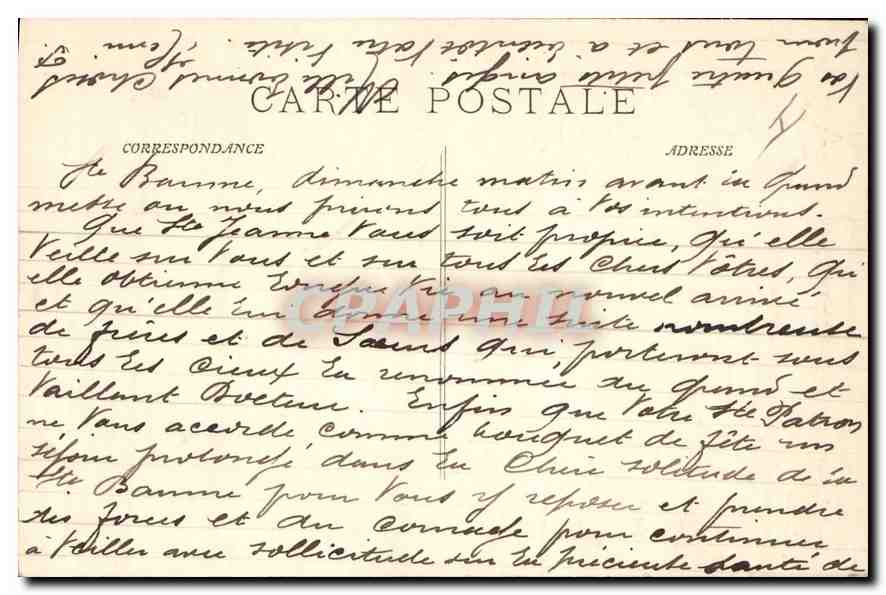 CARTE POSTALE
CORRESPONDANCE
ADRESSE
Ste Baume, dimanche matin avant la Grand
messe où nous prierons tous à vos intentions.
Que Ste Jeanne Vous soit propice, qu'elle
Veille sur Vous et sur tous les Chers Vôtres, qu'
elle obtienne longue Vie au nouvel arrivé
et qu'elle lui donne une suite nombreuse
de frères et de Sœurs qui porteront sous
tous les cieux la renommée du Grand et
Vaillant Docteur. Enfin que Votre Ste Patron
ne Vous accorde, comme bouquet de fête un
séjour prolongé dans la Chère solitude de la
Ste Baume pour Vous y reposer et prendre
des forces et du courage pour continuer
à Veiller avec sollicitude sur la précieuse santé de
Vos quatre petits anges. Mille
tous et à bientôt Votre visite.
CPAPHIL